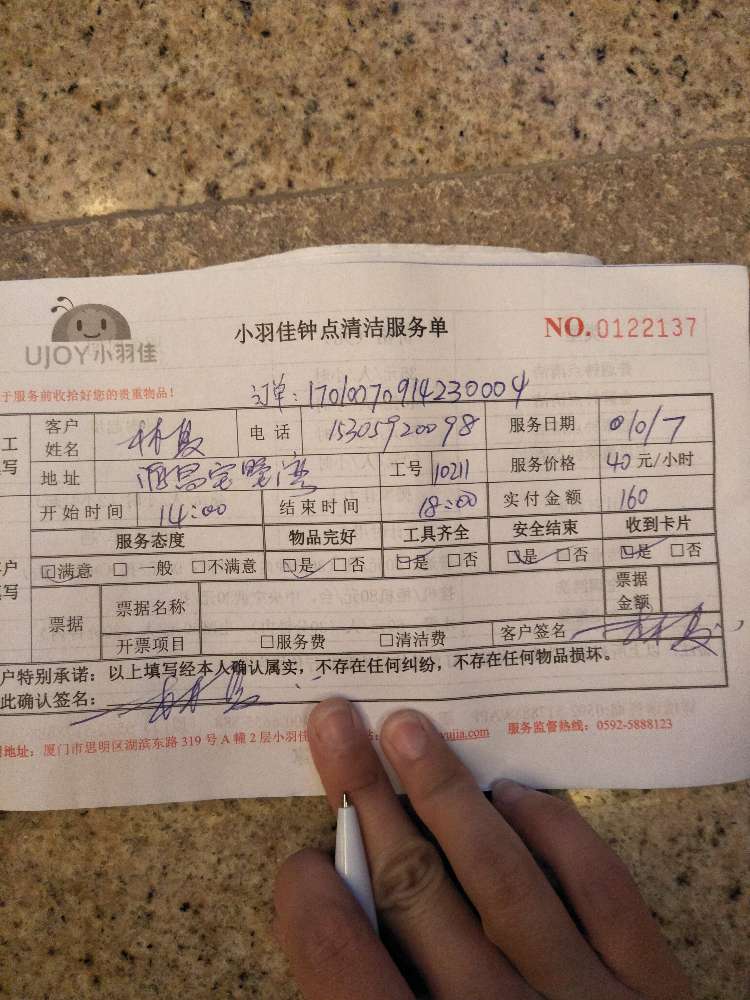 UJOY小羽佳
小羽佳钟点清洁服务单
NO.0122137
于服务前收拾好您的贵重物品!
订单:17010070914230004
工 客户姓名 林 电话 15305920098 服务日期 10/7
写 地址 工号 10211 服务价格 40元/小时
开始时间 14:00 结束时间 18:00 实付金额 160
服务态度 物品完好 工具齐全 安全结束 收到卡片
户 □满意 □一般 □不满意 □是 □否 □是 □否 □是 □否 □是 □否
写 票据 票据名称 票据金额
开票项目 □服务费 □清洁费 客户签名
户特别承诺:以上填写经本人确认属实,不存在任何纠纷,不存在任何物品损坏。
此确认签名:
地址:厦门市思明区湖滨东路319号A幢2层小羽佳 yujia.com 服务监督热线:0592-5888123